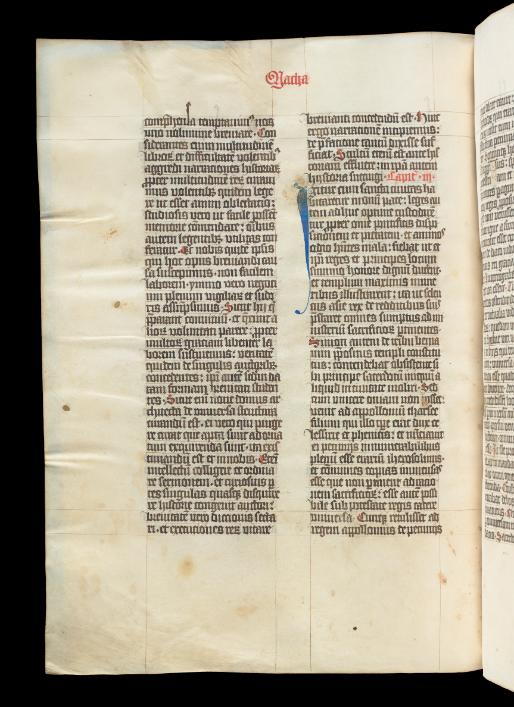 Macha
comp̃hensa temptauimꝰ nos
uno uolumine breuiare. Con
siderantes enim multitudinẽ
libroꝝ et difficultatẽ uolentibꝰ
aggredi narrationes hystoriaꝝ
ꝓpter multitudinẽ reꝝ curaui
mus uolentibus quidem lege
re ut esset animi oblectatio:
studiosis uero ut facile possẽt
memorie cõmendare: oĩbus
autem legentibus utilitas con
feratur. Et nobis quidẽ ipsis
qui hoc opus breuiandi cau
sa suscepimus. non facilem
laborem. ymmo uero negoci
um plenum uigiliaꝝ et sudo
ris assũpsimus. Sicut hij qͥ
p̃parant conuiuiũ. et querũt a
lioꝝ uoluntati parere. ꝓpter
multoꝝ gratiam libenter la
borem sustinemus: ueritatẽ
quidem de singulis auctoribꝰ
concedentes: ipĩ autẽ secũdũ da
tam formam breuitati studen
tes. Sicut enĩ noue domus ar
chitecto de uniuersa structura
curandum est. ei uero qui pinge
re curat que apta sunt ad orna
tum exquirenda sunt. ita exi
timandũ est et in nobis. Etenĩ
intellectũ colligere et ordina
re sermonem. et curiosius par
tes singulas quasqꝫ disquire
re hystorie congruit auctori:
breuitatẽ uero dictionis secta
ri. et executiones reꝝ uitare
breuianti concedendũ est. Hinc
ergo narrationẽ incipiemus:
de p̃fatione tantũ dixisse suf
ficiat. Stultũ etenĩ est ante hys
toriam effluere: in ipã autem
hystoria succingi. Capitꝉm. iij.
Igitur cum sancta ciuitas ha
bitaretur in omni pace: leges au
tem adhuc optime custodirẽt᷑
ꝓpter onie pontificis
pietatem et animos
odio hñtes mala: fiebat ut et
ipĩ reges et principes locum
summo honore dignũ ducerẽt.
et templum maximis mune
ribus illustrarent: ita ut seleu
cus asie rex de redditibus suis
p̃staret omnes sumptus ad mi
nisterium sacrificioꝝ ꝑtinentes.
Symon autem de tribu benia
min p̃positus templi constitu
tus: contendebat obsistente si
bi principe sacerdotũ iniquũ a
liquid in ciuitate moliri. Sed
cum uincere oniam non posset
uenit ad appollonium tharsee
filium qui illo tp̃e erat dux ce
lesirie et phenicis: et nũciauit
ei pecunijs innumerabilibus
plenũ esse erarium iherosolimis.
et cõmunes copias immensas
esse que non ꝑtinent ad ratio
nem sacrificioꝝ: esse autẽ possi
bile sub potestate regis cadere
uniuersa. Cumqꝫ retulisset ad
regem appollonius de pecunijs